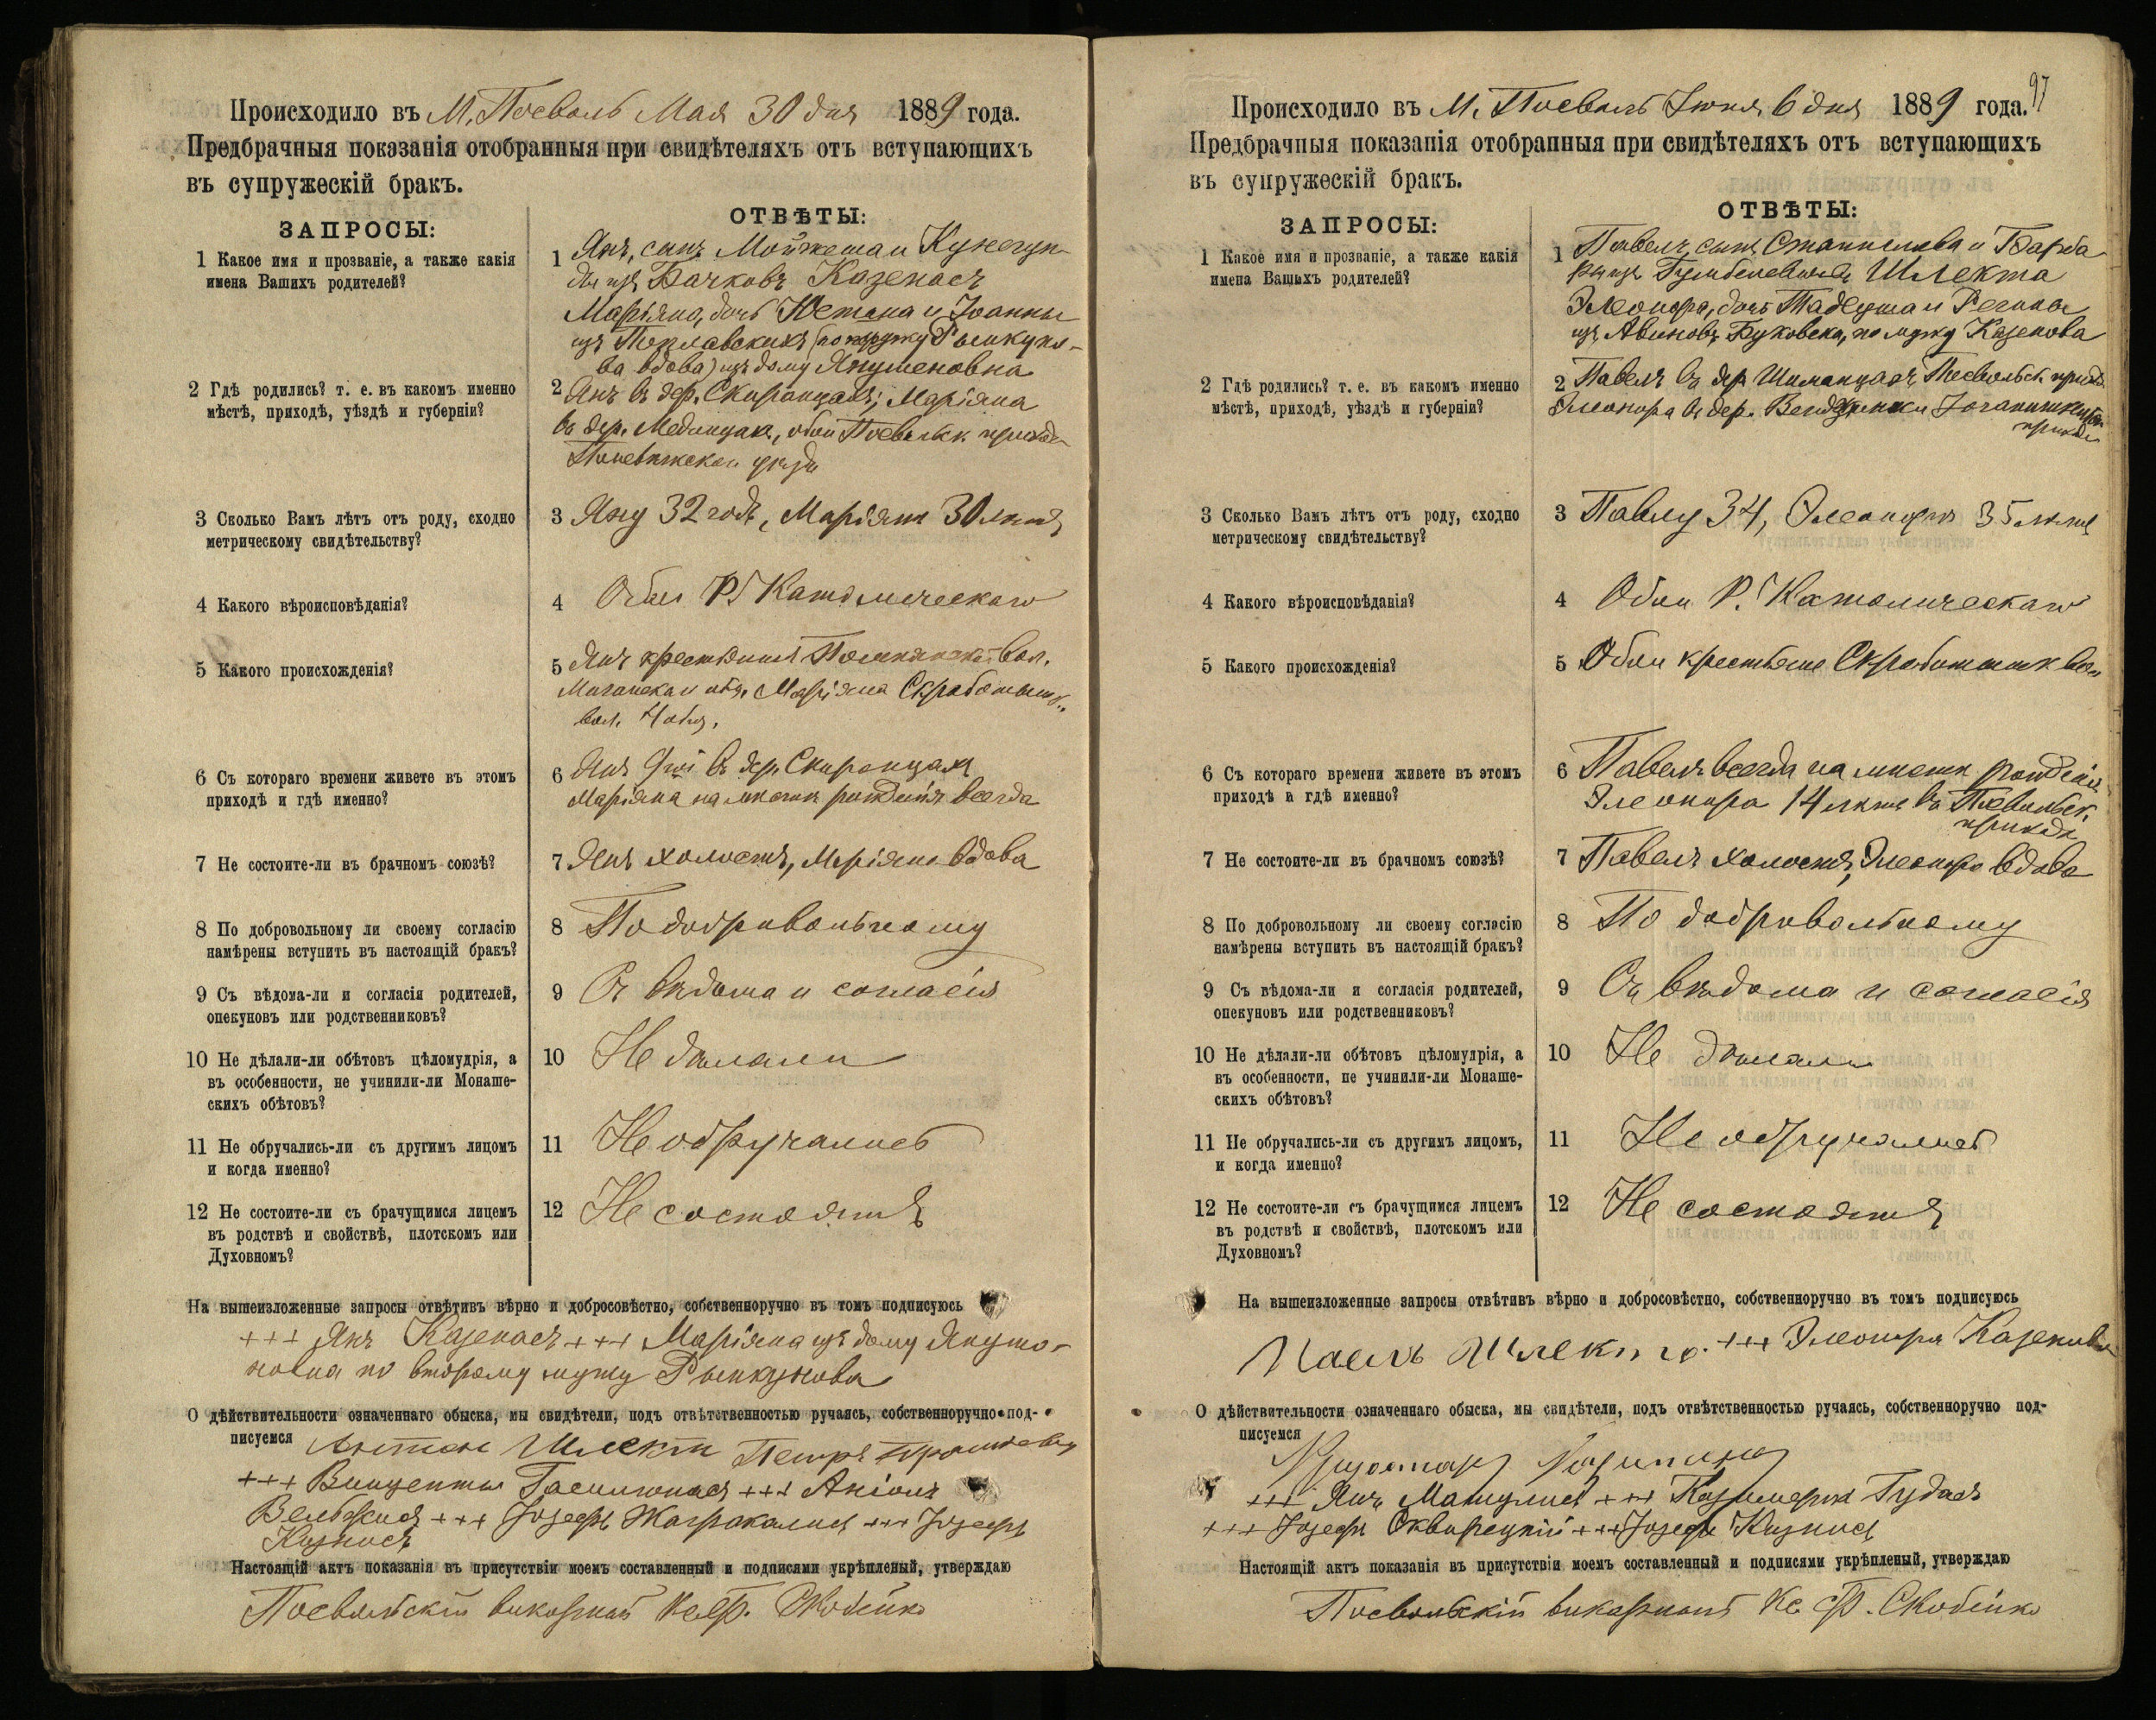 Происходило въ М. Посволь Мая 30 дня 1889 года.
Предбрачныя показанія отобранныя при свидѣтеляхъ отъ вступающихъ
въ супружескій бракъ.
ЗАПРОСЫ:
ОТВѢТЫ:
1 Какое имя и прозваніе, а также какія
имена Вашихъ родителей?
1 Янъ, сынъ Мойжеша и Кунегун-
ды изъ Бачковъ Казенасъ
Маріяна, дочь и Іоанны
изъ Поплавскихъ (по мужу Рымкуно-
ва вдова) изъ дому Янушеновна
2 Гдѣ родились? т. е. въ какомъ именно
мѣстѣ, приходѣ, уѣздѣ и губерніи?
2 Янъ въ дер. Скиранцахъ; Маріяна
въ дер. обои Посвольск. прихода
Поневѣжскаго уѣзда
3 Сколько Вамъ лѣтъ отъ роду, сходно
метрическому свидѣтельству?
3 Яну 32 года, Маріянѣ 30 лѣтъ
4 Какого вѣроисповѣданія?
4 Обои Р. Католическаго
5 Какого происхожденія?
5 Янъ крестьянинъ вол.
общ. Маріяна Скработышк.
вол. 4 общ.
6 Съ котораго времени живете въ этомъ
приходѣ и гдѣ именно?
6 Янъ въ дер. Скиранцахъ
Маріяна на мѣстѣ рожденія всегда
7 Не состоите-ли въ брачномъ союзѣ?
7 Янъ холостъ, Маріяна вдова
8 По добровольному ли своему согласію
намѣрены вступить въ настоящій бракъ?
8 По добровольному
9 Съ вѣдома-ли и согласія родителей,
опекуновъ или родственниковъ?
9 Съ вѣдома и согласія
10 Не дѣлали-ли обѣтовъ цѣломудрія, а
въ особенности, не учинили-ли Монаше-
скихъ обѣтовъ?
10 Не дѣлали
11 Не обручались-ли съ другимъ лицомъ
и когда именно?
11 Не обручались
12 Не состоите-ли съ брачущимся лицемъ
въ родствѣ и свойствѣ, плотскомъ или
Духовномъ?
12 Не состоятъ
На вышеизложенные запросы отвѣтивъ вѣрно и добросовѣстно, собственноручно въ томъ подписуюсь
+++ Янъ Казенасъ +++ Маріяна изъ дому Януше-
новна по второму мужу Рымкунова
О дѣйствительности означеннаго обыска, мы свидѣтели, подъ отвѣтственностью ручаясь, собственноручно под-
писуемся Антон Шлект Петръ
+++ Винценты +++ Антонъ
+++ Іозефъ +++ Іозефъ
Казнасъ
Настоящій актъ показанія въ присутствіи моемъ составленный и подписями укрѣпленый, утверждаю
Посвольскій викарный Кс. Ф. Скобейко
97
Происходило въ М. Посволь Іюня 6 дня 1889 года.
Предбрачныя показанія отобранныя при свидѣтеляхъ отъ вступающихъ
въ супружескій бракъ.
ЗАПРОСЫ:
ОТВѢТЫ:
1 Какое имя и прозваніе, а также какія
имена Вашихъ родителей?
1 Павелъ, сынъ Станислава и Барба-
ры изъ Шлекта
Элеонора, дочь Тадеуша и Регины
изъ Авиновъ Буковска, по мужу Казенова
2 Гдѣ родились? т. е. въ какомъ именно
мѣстѣ, приходѣ, уѣздѣ и губерніи?
2 Павелъ въ дер. Шиманцахъ Посвольск. прихода
Элеонора въ дер.
прихода
3 Сколько Вамъ лѣтъ отъ роду, сходно
метрическому свидѣтельству?
3 Павлу 34, Элеонорѣ 35 лѣтъ
4 Какого вѣроисповѣданія?
4 Обои Р. Католическаго
5 Какого происхожденія?
5 Обои крестьяне Скработышк. вол.
6 Съ котораго времени живете въ этомъ
приходѣ и гдѣ именно?
6 Павелъ всегда на мѣстѣ рожденія
Элеонора 14 лѣтъ въ Посвольск.
приходѣ
7 Не состоите-ли въ брачномъ союзѣ?
7 Павелъ холостъ, Элеонора вдова
8 По добровольному ли своему согласію
намѣрены вступить въ настоящій бракъ?
8 По добровольному
9 Съ вѣдома-ли и согласія родителей,
опекуновъ или родственниковъ?
9 Съ вѣдома и согласія
10 Не дѣлали-ли обѣтовъ цѣломудрія, а
въ особенности, не учинили-ли Монаше-
скихъ обѣтовъ?
10 Не дѣлали
11 Не обручались-ли съ другимъ лицомъ,
и когда именно?
11 Не обручались
12 Не состоите-ли съ брачущимся лицемъ
въ родствѣ и свойствѣ, плотскомъ или
Духовномъ?
12 Не состоятъ
На вышеизложенные запросы отвѣтивъ вѣрно и добросовѣстно, собственноручно въ томъ подписуюсь
Шлекто. +++ Элеонора Казенова
О дѣйствительности означеннаго обыска, мы свидѣтели, подъ отвѣтственностью ручаясь, собственноручно под-
писуемся
+++ Янъ Матулисъ +++ Казимеръ Гудасъ
+++ Іозефъ Скворецкій +++ Іозефъ Казнасъ
Настоящій актъ показанія въ присутствіи моемъ составленный и подписями укрѣпленый, утверждаю
Посвольскій викарный Кс. Ф. Скобейко